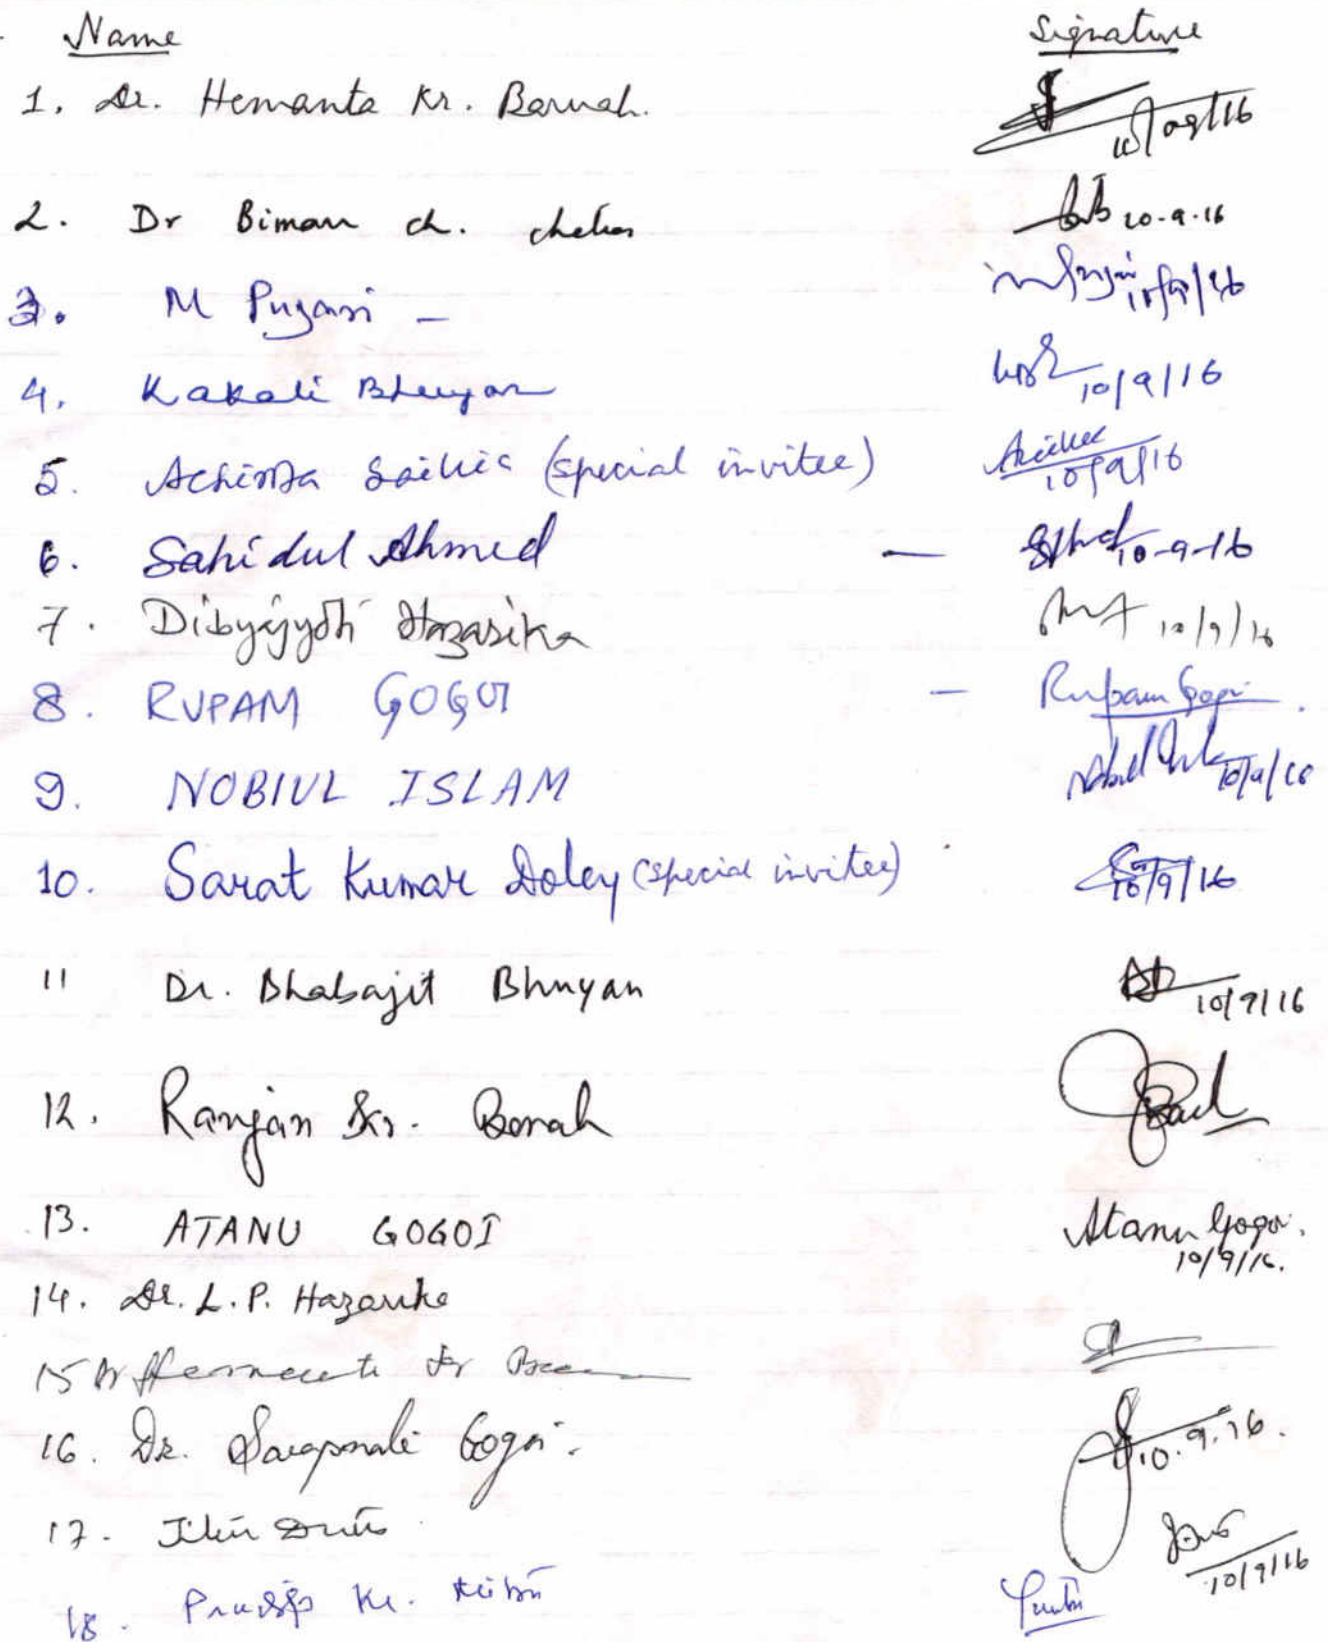 Name Signature
1. Dr. Hemanta Kr. Baruah. 10/09/16
2. Dr Biman ch. 10-9-16
3. M Pujari - 10/9/16
4. Kakali Bhuyan 10/9/16
5. Achinta Saikia (special invitee) 10/9/16
6. Sahidul Ahmed — 10-9-16
7. Dibyajyoti Hazarika 10/9/16
8. RUPAM GOGOI — Rupam Gogoi.
9. NOBIUL ISLAM 10/9/16
10. Sarat Kumar Doley (special invitee) 10/9/16
11 Dr. Bhabajit Bhuyan 10/9/16
12. Ranjan Kr. Borah
13. ATANU GOGOI Atanu Gogoi.
10/9/16.
14. Dr. L.P. Hazarika
15 Dr Kr
16. Dr. Gogoi. 10.9.16.
17.
10/9/16
18. Kr.